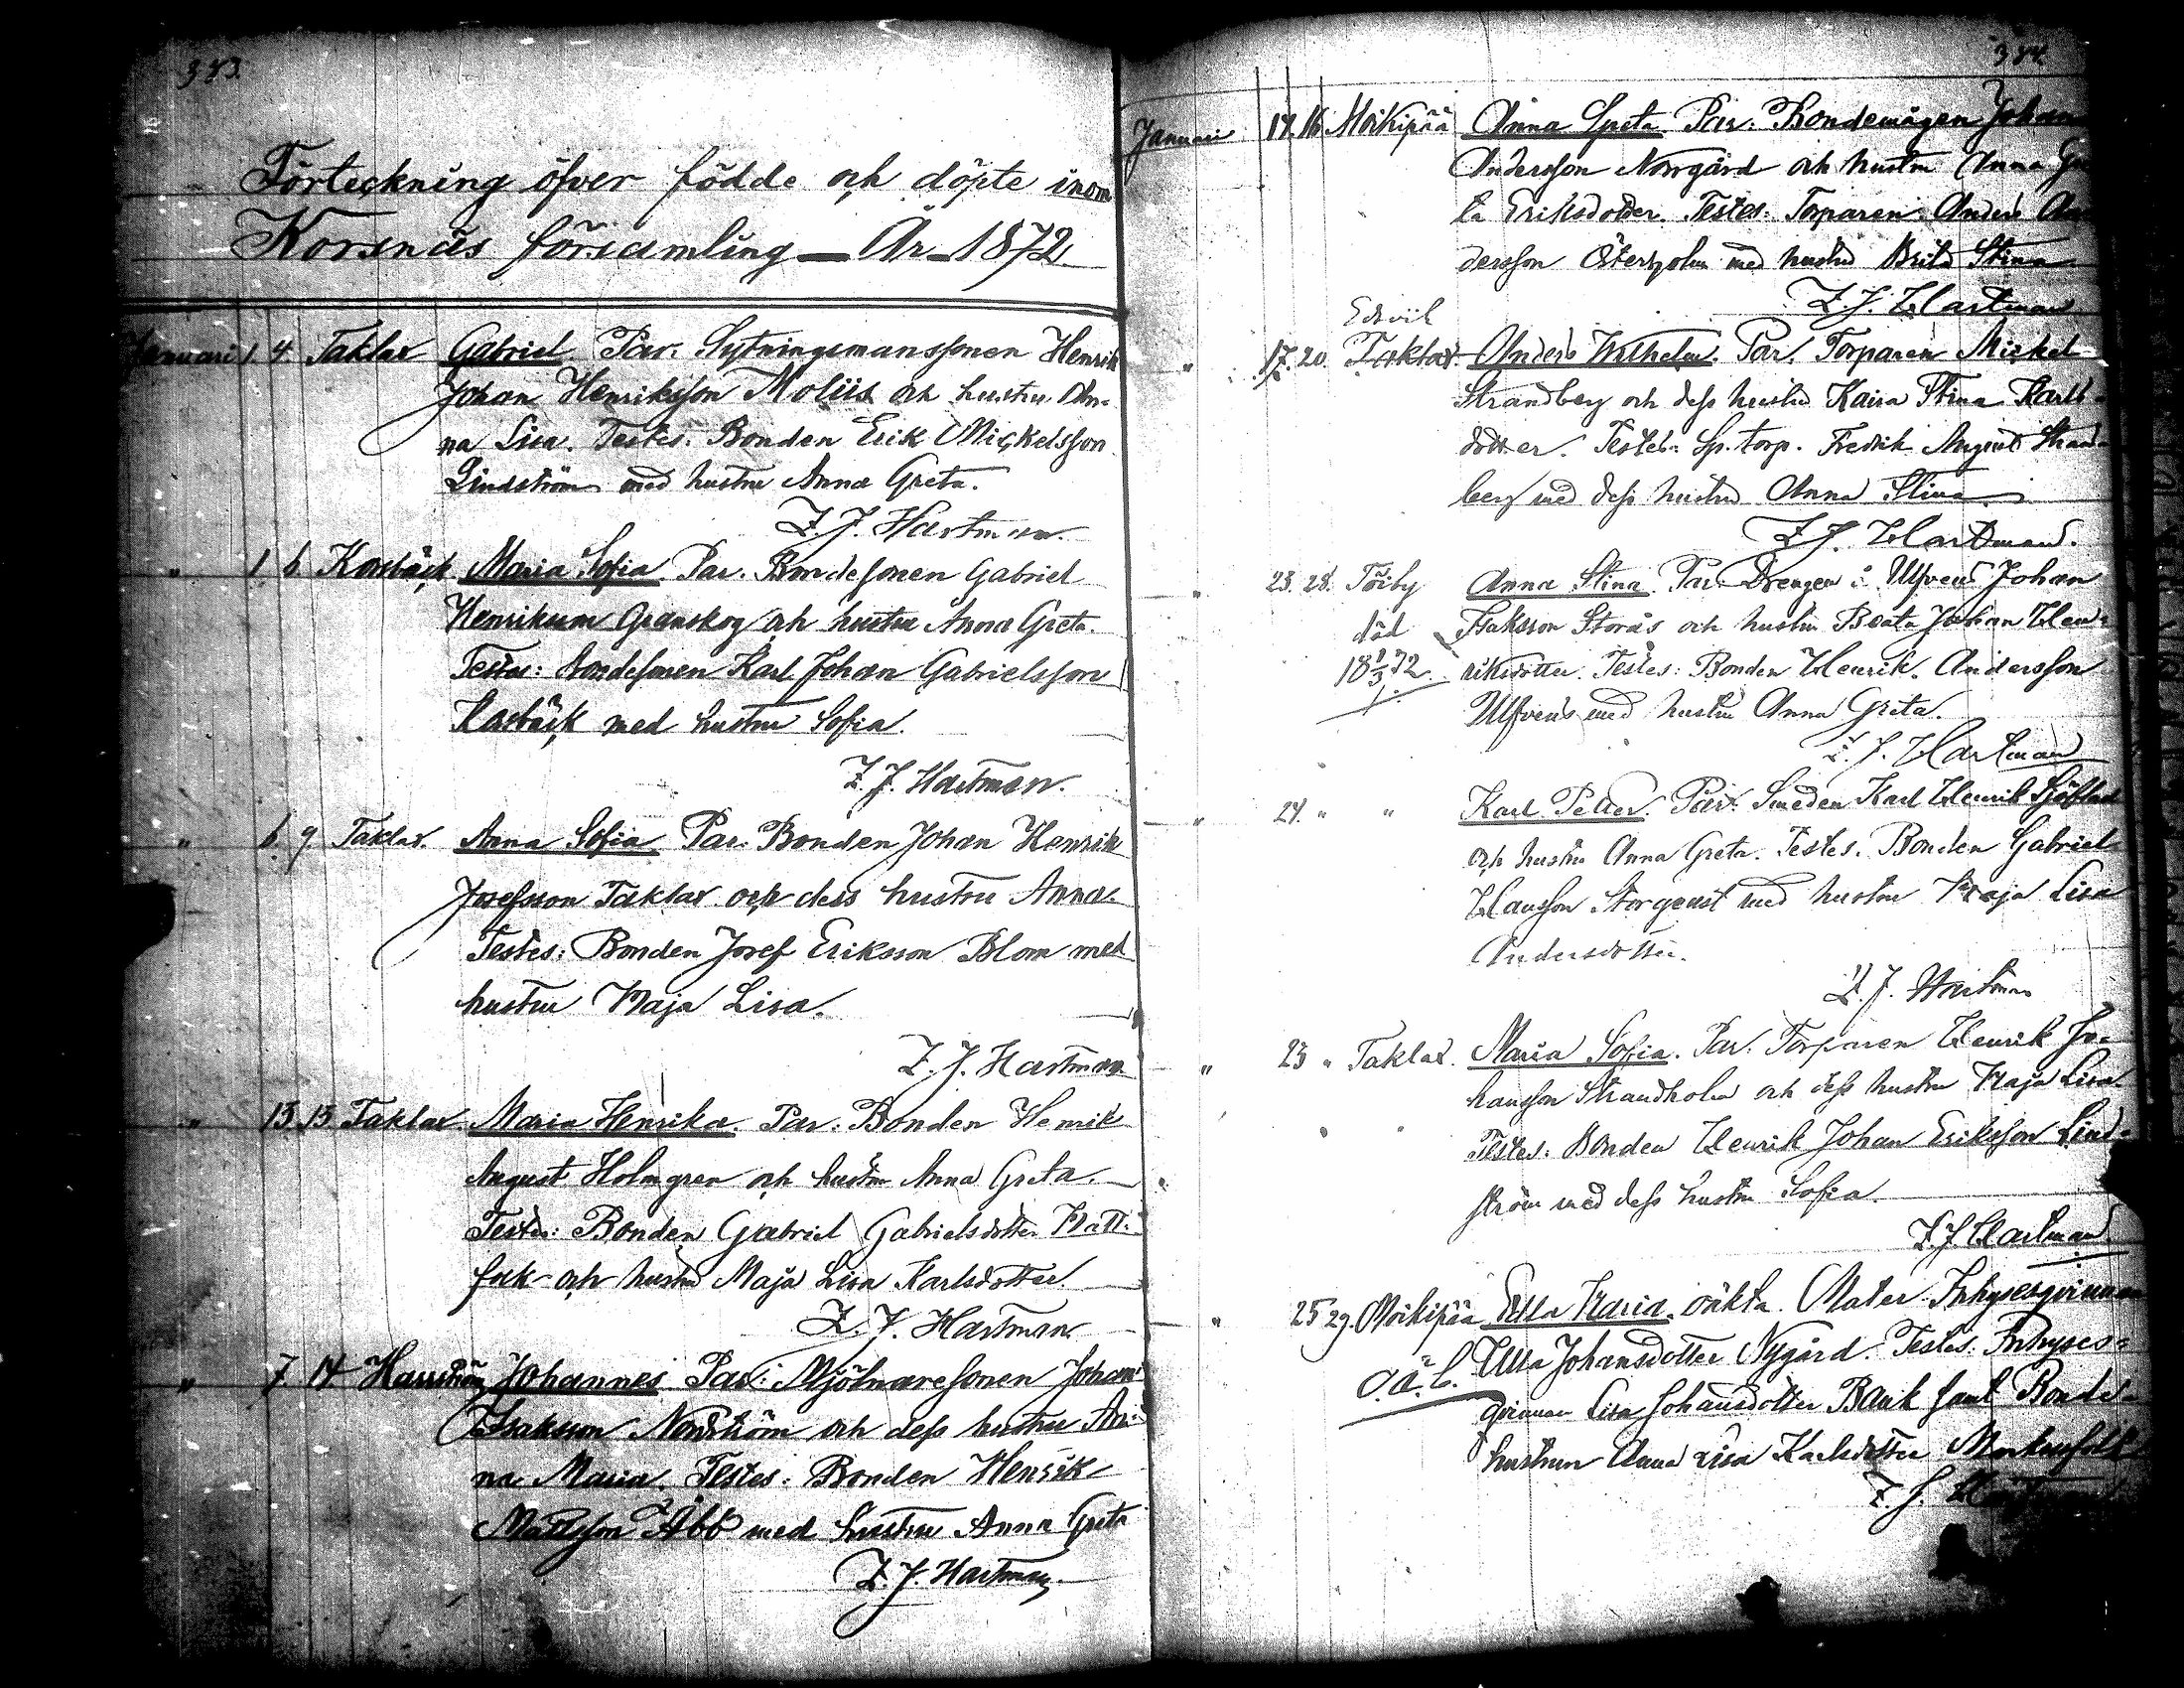 383.
Förteckning öfver födde och döpte inom
Korsnäs församling — År 1872
Januari 1. 4 Taklax Gabriel. Par. Sytningsmanssonen Henrik
Johan Henriksson Moliis och hustru An-
na Lisa. Testes: Bonden Erik Mickelsson
Lindström med hustru Anna Greta.
Z. J. Hartman.
" 1 6 Korsbäck Maria Sofia. Par. Bondesonen Gabriel
Henriksson Granskog och hustru Anna Greta.
Testes: Bondesonen Karl Johan Gabrielsson
Korsbäck med hustru Sofia.
Z. J. Hartman.
" 6. 9 Taklax. Anna Sofia. Par. Bonden Johan Henrik
Josefsson Taklax och dess hustru Anna.
Testes: Bonden Josef Eriksson Blom med
hustru Maja Lisa.
Z. J. Hartman
" 13 13 Taklax Maria Henrika. Par: Bonden Henrik
August Holmgren och hustru Anna Greta.
Testes: Bonden Gabriel Gabrielsdotter
och hustru Maja Lisa Karlsdotter.
Z. J. Hartman
" 7. 14 Johannes Par: Mjölnaresonen Johan
Isaksson Nordström och dess hustru An-
na Maria. Testes: Bonden Henrik
Mattsson Abb med hustru Anna Greta
Z. J. Hartman.
384.
Januari 16 Moikipää Anna Greta. Par: Bondemågen Johan
Andersson Norrgård och hustru Anna Gre
ta Eriksdotter. Testes: Torparen Anders An
dersson Österholm med hustru Brita Stina
Z. J. Hartman
Edsvik
" 17. 20. Taklax. Anders Wilhelm. Par. Torparen Mickel
Strandberg och dess hustru Kaisa Stina Karls
dotter. Testes: Sp. torp. Fredrik August Strand-
berg med dess hustru Anna Stina
Z. J. Hartman.
" 23. 28. Töjby Anna Stina. Par. Drengen i Ulfvens Johan
död Isaksson Storås och hustru Beata Johan Hen-
18 1/3 72. riksdotter. Testes: Bonden Henrik Andersson
Ulfvens med hustru Anna Greta.
Z. J. Hartman
" 24. " " Karl Petter. Par. Smeden Karl Henrik Sjöblad
och hustru Anna Greta. Testes. Bonden Gabriel
Hansson Storgeust med hustru Maja Lisa
Andersdotter.
Z. J. Hartman
" 23 " Taklax. Maria Sofia. Par. Torparen Henrik Jo-
hansson Strandholm och dess hustru Maja Lisa.
Testes: Bonden Henrik Johan Eriksson Lind-
ström med dess hustru Sofia.
Z. J. Hartman
" 25 29. Moikipää Maria. oäkta. Mater Inhysesqvinnan
o. ä. b. Ulla Johansdotter Nygård. Testes: Inhyses-
qvinnan Lisa Johansdotter Bank samt Bonde-
hustrun Anna Lisa Karlsdotter
Z. J. Hartman